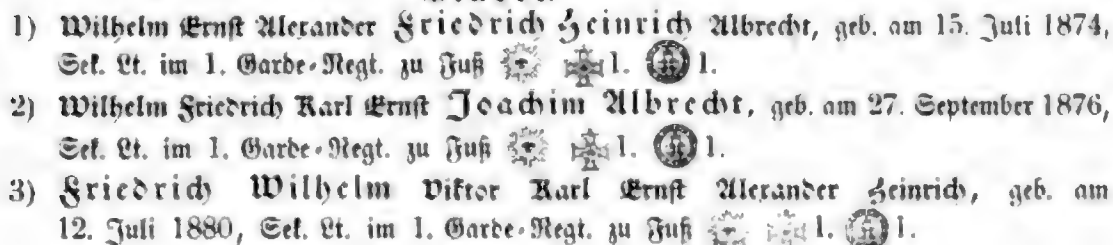 1) Wilhelm Ernst Alexander Friedrich Heinrich Albrecht, geb. am 15. Juli 1874,
Sek. Lt. im 1. Garde-Regt. zu Fuß 1. 1.
2) Wilhelm Friedrich Karl Ernst Joachim Albrecht, geb. am 27. September 1876,
Sek. Lt. im 1. Garde-Regt. zu Fuß 1. 1.
3) Friedrich Wilhelm Viktor Karl Ernst Alexander Heinrich, geb. am
12. Juli 1880, Sek. Lt. im 1. Garde-Regt. zu Fuß 1. 1.